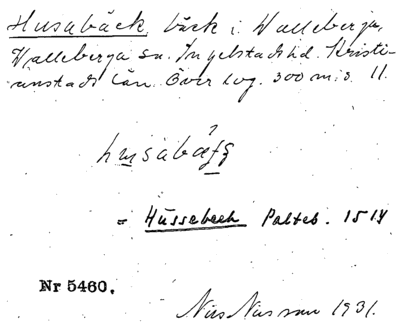 Husabäck, bäck i Walleberga,
Walleberga sn. Ingelstads hd. Kristi-
anstads län. Över log. 300 m. s. 11.
husabæ̀k
= Hüssebeck Palteb. 1514
Nr 5460.
Nils Nilsson 1931.